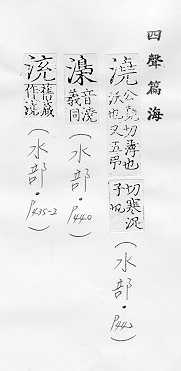 四聲篇海
澆
公堯切薄也
沃也又五弔
切寒浞
子呪
(水部·P442)
濠
音澆
義同
(水部·P440)
浇
舊藏
作澆
(水部·P435-2)